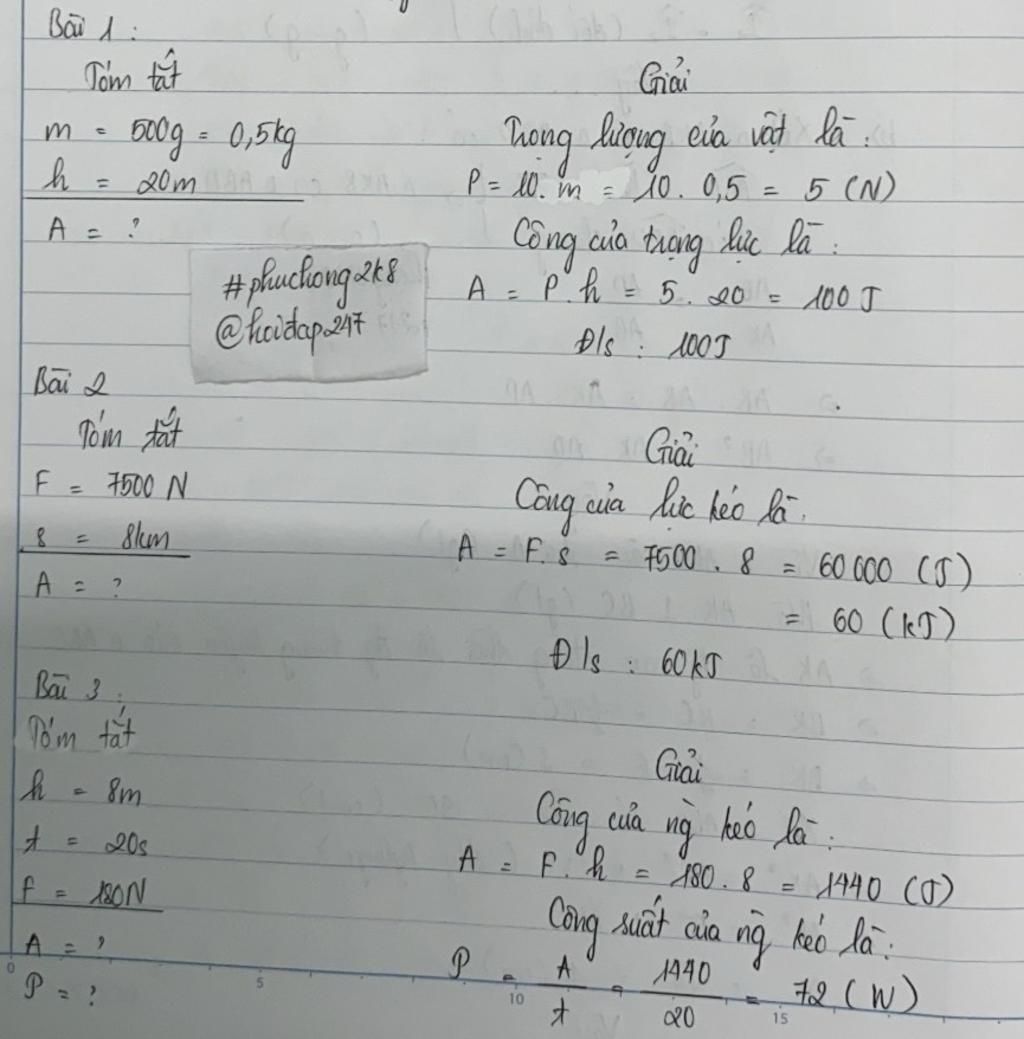 Bài 1 :
Tóm tắt
m = 500g = 0,5kg
h = 20m
A = ?
Giải
Trọng lượng của vật là :
P = 10. m = 10. 0,5 = 5 (N)
Công của trọng lực là :
A = P. h = 5. 20 = 100 J
Đ/s : 100J
#phuchong2k8
@hoidap247
Bài 2
Tóm tắt
F = 7500 N
s = 8km
A = ?
Giải
Công của lực kéo là.
A = F. s = 7500. 8 = 60 000 (J)
= 60 (kJ)
Đ/s : 60kJ
Bài 3 :
Tóm tắt
h = 8m
t = 20s
F = 180N
A = ?
P = ?
Giải
Công của ng̀ kéo là :
A = F. h = 180. 8 = 1440 (J)
Công suất của ng̀ kéo là :
P = A/t = 1440/20 = 72 (W)
0 5 10 15